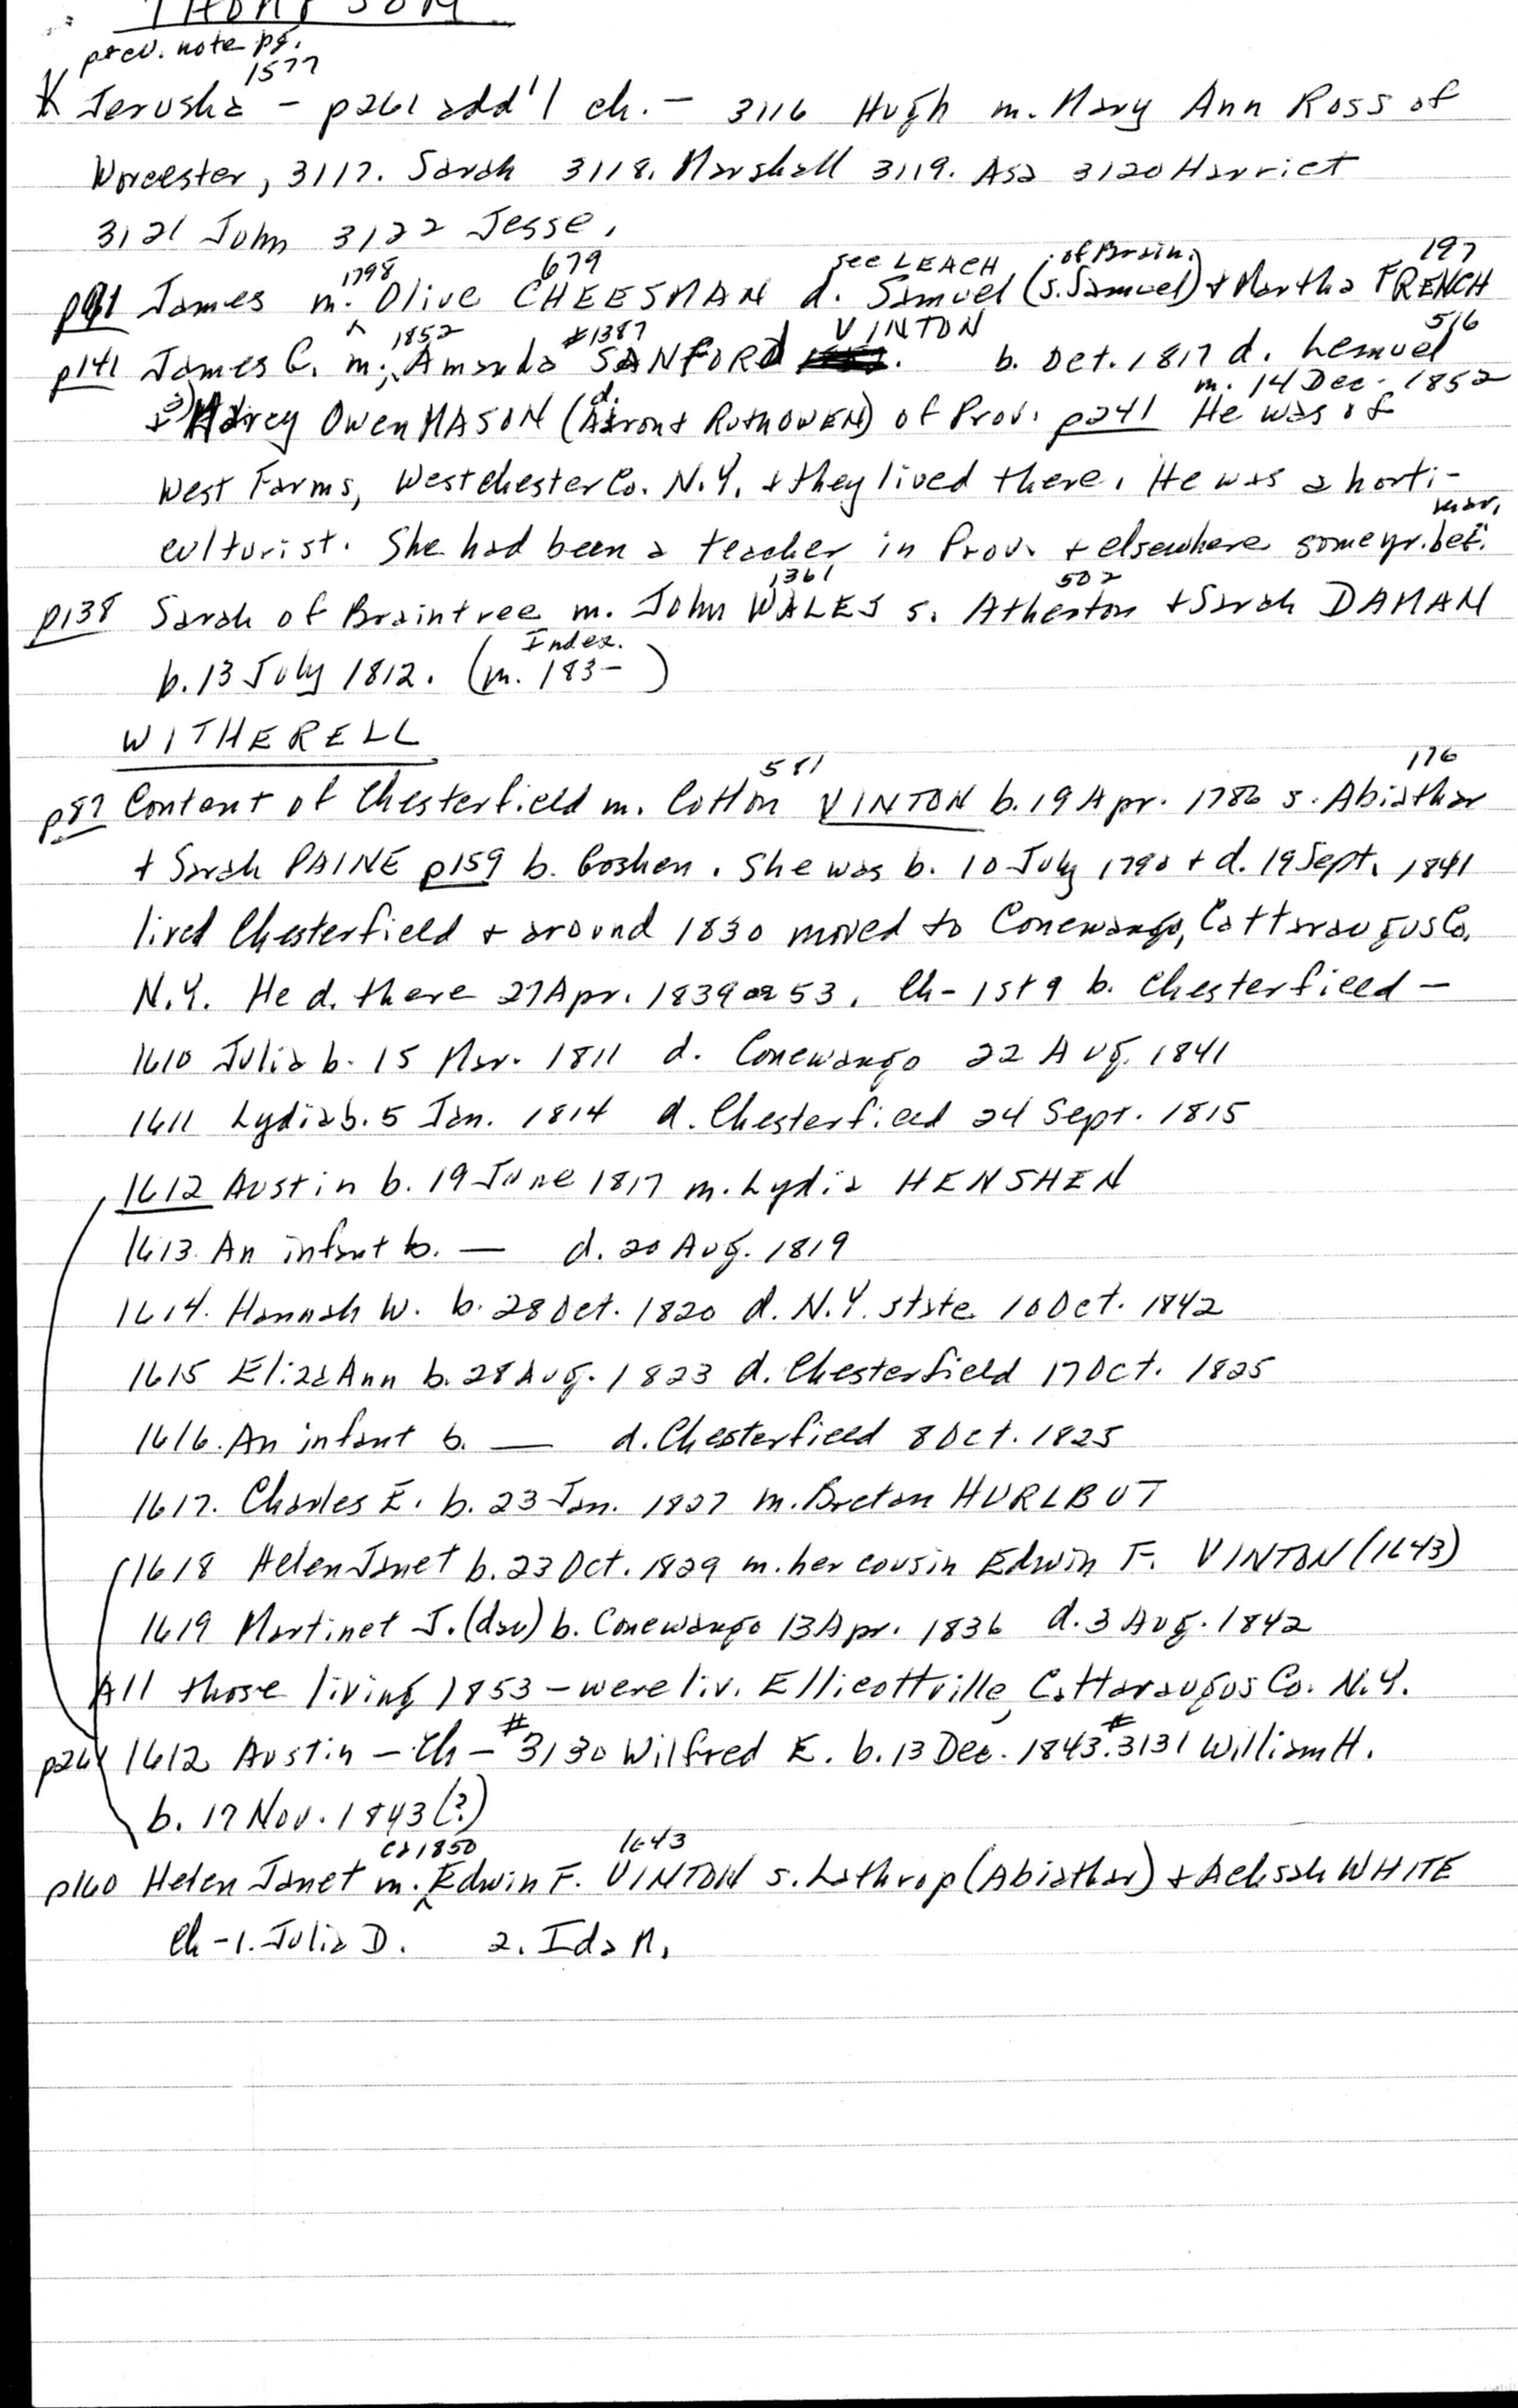 THOMPSON
prev. note pg.
1577
Jerusha - p261 add'l ch. - 3116 Hugh m. Mary Ann Ross of
Worcester, 3117. Sarah 3118. Marshall 3119. Asa 3120 Harriet
3121 John 3122 Jesse.
1798 679 see LEACH of Brain. 197
James m. Olive CHEESMAN d. Samuel (s. Samuel) + Martha FRENCH
1852 #1387 VINTON 516
p141 James C. m. Amanda SANFORD b. Oct. 1817 d. Lemuel
m. 14 Dec. 1852
Owen MASON (d. Aaron + Ruth OWEN) of Prov. p241 He was of
West Farms, Westchester Co. N.Y. + they lived there. He was a horti-
mar.
culturist. She had been a teacher in Prov. + elsewhere some yr. bef.
1361 502
p138 Sarah of Braintree m. John WALES s. Atherton + Sarah DAMAN
Index.
b. 13 July 1812. (m. 183-)
WITHERELL
581 176
p87 Content of Chesterfield m. Cotton VINTON b. 19 Apr. 1786 s. Abiathar
+ Sarah PAINE p159 b. Goshen. She was b. 10 July 1790 + d. 19 Sept. 1841
lived Chesterfield + around 1830 moved to Conewango, Cattaraugus Co.
N.Y. He d. there 27 Apr. 1839 or 53. Ch- 1st 9 b. Chesterfield -
1610 Julia b. 15 Mar. 1811 d. Conewango 22 Aug. 1841
1611 Lydia b. 5 Jan. 1814 d. Chesterfield 24 Sept. 1815
1612 Austin b. 19 June 1817 m. Lydia HENSHEN
1613. An infant b. — d. 20 Aug. 1819
1614. Hannah W. b. 28 Oct. 1820 d. N.Y. state 10 Oct. 1842
1615 Eliza Ann b. 28 Aug. 1823 d. Chesterfield 17 Oct. 1825
1616. An infant b. — d. Chesterfield 8 Oct. 1825
1617. Charles E. b. 23 Jan. 1827 m. Breton HURLBUT
1618 Helen Janet b. 23 Oct. 1829 m. her cousin Edwin F. VINTON (1643)
1619 Martinet J. (dau) b. Conewango 13 Apr. 1836 d. 3 Aug. 1842
All those living 1853 - were liv. Ellicottville, Cattaraugus Co. N.Y.
1612 Austin - Ch - #3130 Wilfred E. b. 13 Dec. 1843. #3131 William H.
b. 17 Nov. 1843 (?)
ca 1850 1643
p160 Helen Janet m. Edwin F. VINTON s. Lathrop (Abiathar) + Achsah WHITE
Ch - 1. Julia D. 2. Ida M.